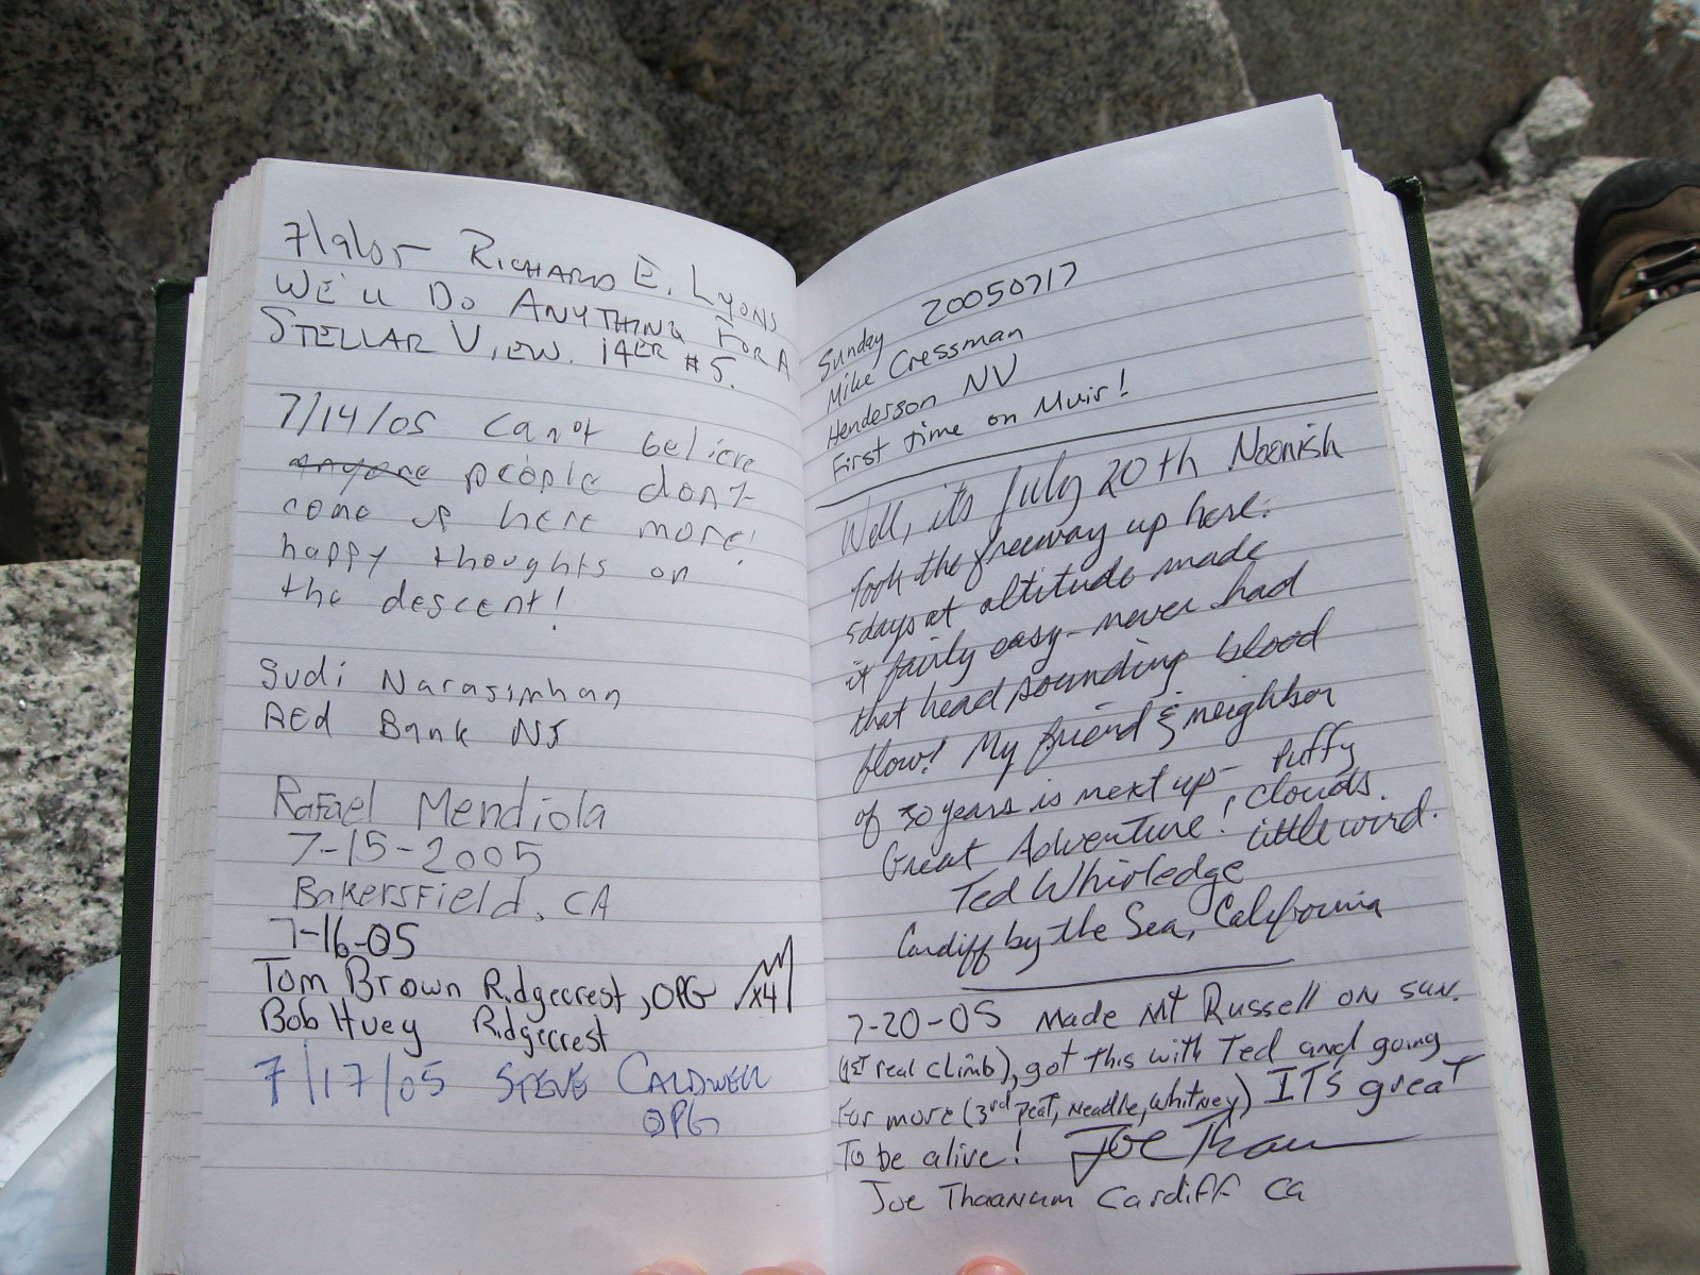 7/9/05 RICHARD E. LYONS
WE'LL DO ANYTHING FOR A
STELLAR VIEW. 14ER #5.
7/14/05 can't believe
anyone people don't
come up here more!
happy thoughts on
the descent!
Sudi Narasimhan
REd Bank NJ
Rafael Mendiola
7-15-2005
Bakersfield, CA
7-16-05
Tom Brown Ridgecrest, OPG X4
Bob Huey Ridgecrest
7/17/05 STEVE CALDWELL
OPG
Sunday 20050717
Mike Cressman
Henderson NV
First time on Muir!
Well, it's July 20th Noonish
Took the freeway up here.
5 days at altitude made
it fairly easy - never had
that head pounding blood
flow! My friend & neighbor
of 30 years is next up - Puffy
Great Adventure! , clouds.
Ted Whirledge little wind.
Cardiff by the Sea, California
7-20-05 Made Mt Russell on sun.
(1st real climb), got this with Ted and going
For more (3rd Peat, Neadle, Whitney) IT'S great
To be alive! Joe Thaanum
Joe Thaanum Cardiff Ca